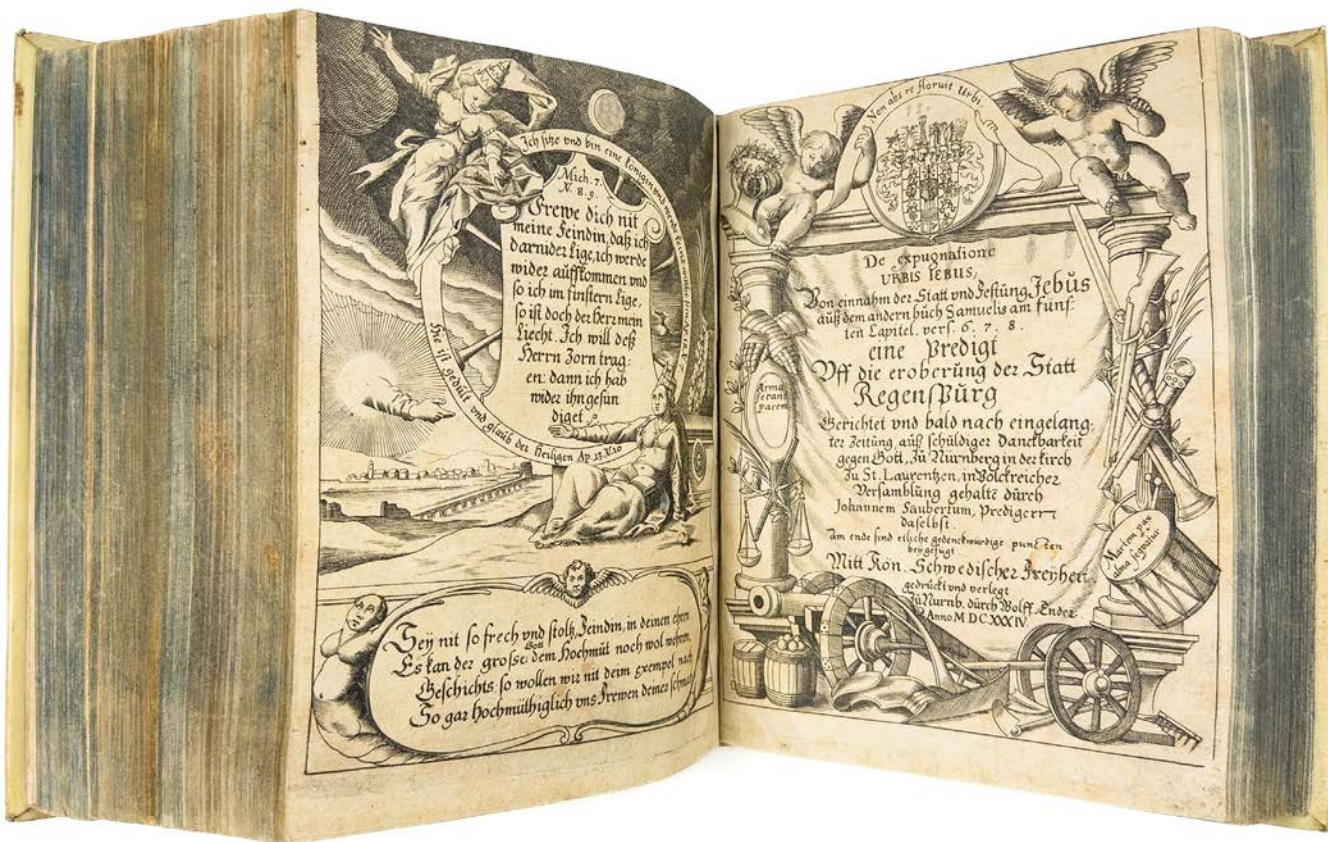 Ich sitze vnd bin eine Königin vnd werde keine
Mich. 7.
V. 8. 9.
Frewe dich nit
meine Feindin, daß ich
darnider lige, ich werde
wider auffkommen vnd
so ich im finstern lige,
so ist doch der Herr mein
Liecht. Ich will deß
Herrn Zorn trag-
en: dann ich hab
wider ihn gesün
diget.
Hie ist gedült vnd glaub der Heiligen Ap. 13. V. 10
Sey nit so frech vnd stoltz, Feindin, in deinen ehren
Es kan der grosse Gott dem Hochmüt noch wol wehren,
Geschichts: so wollen wir nit deim exempel nach
So gar hochmüthiglich vns Frewen deiner schmach
Non abs re floruit Urbi.
De expugnatione
URBIS IEBUS,
Von einnahm der Statt vnd Festung Jebüs
auß dem andern büch Samuelis am fünf-
ten Capitel. vers. 6. 7. 8.
eine Predigt
Vff die eroberüng der Statt
Regenspürg
Gerichtet vnd bald nach eingelang-
ter Zeitüng, auß schüldiger Danckbarkeit
gegen Gott, zü Nürnberg in der kirch
zu St. Laurentzen, in Volckreicher
Versamblüng gehaltē dürch
Johannem Saubertum, Predigern
daselbst.
am ende sind etliche gedenckwürdige puncten
beygefügt
Mitt Kön. Schwedischer Freyheit,
gedrückt vnd verlegt
Zü Nürnb. dürch Wolff. Ender
Anno M DC XXXIV.
Arma
ferant
pacem
Martem pax
alma sequatur